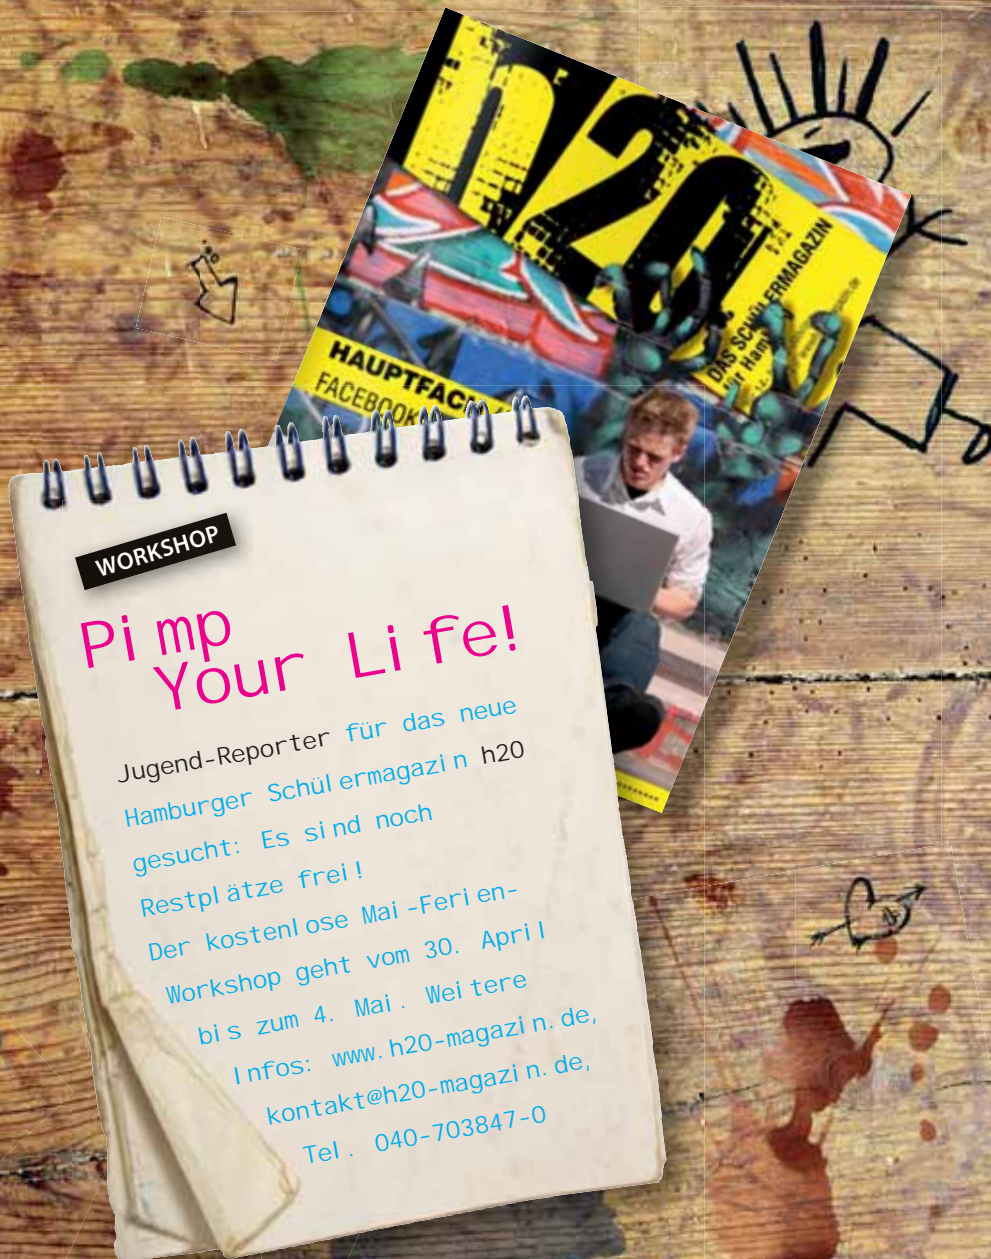 h20
DAS SCHÜLERMAGAZIN
für Hamburg
HAUPTFACH
FACEBOOK
WORKSHOP
Pimp
Your Life!
Jugend-Reporter für das neue
Hamburger Schülermagazin h20
gesucht: Es sind noch
Restplätze frei!
Der kostenlose Mai-Ferien-
Workshop geht vom 30. April
bis zum 4. Mai. Weitere
Infos: www.h20-magazin.de,
kontakt@h20-magazin.de,
Tel. 040-703847-0